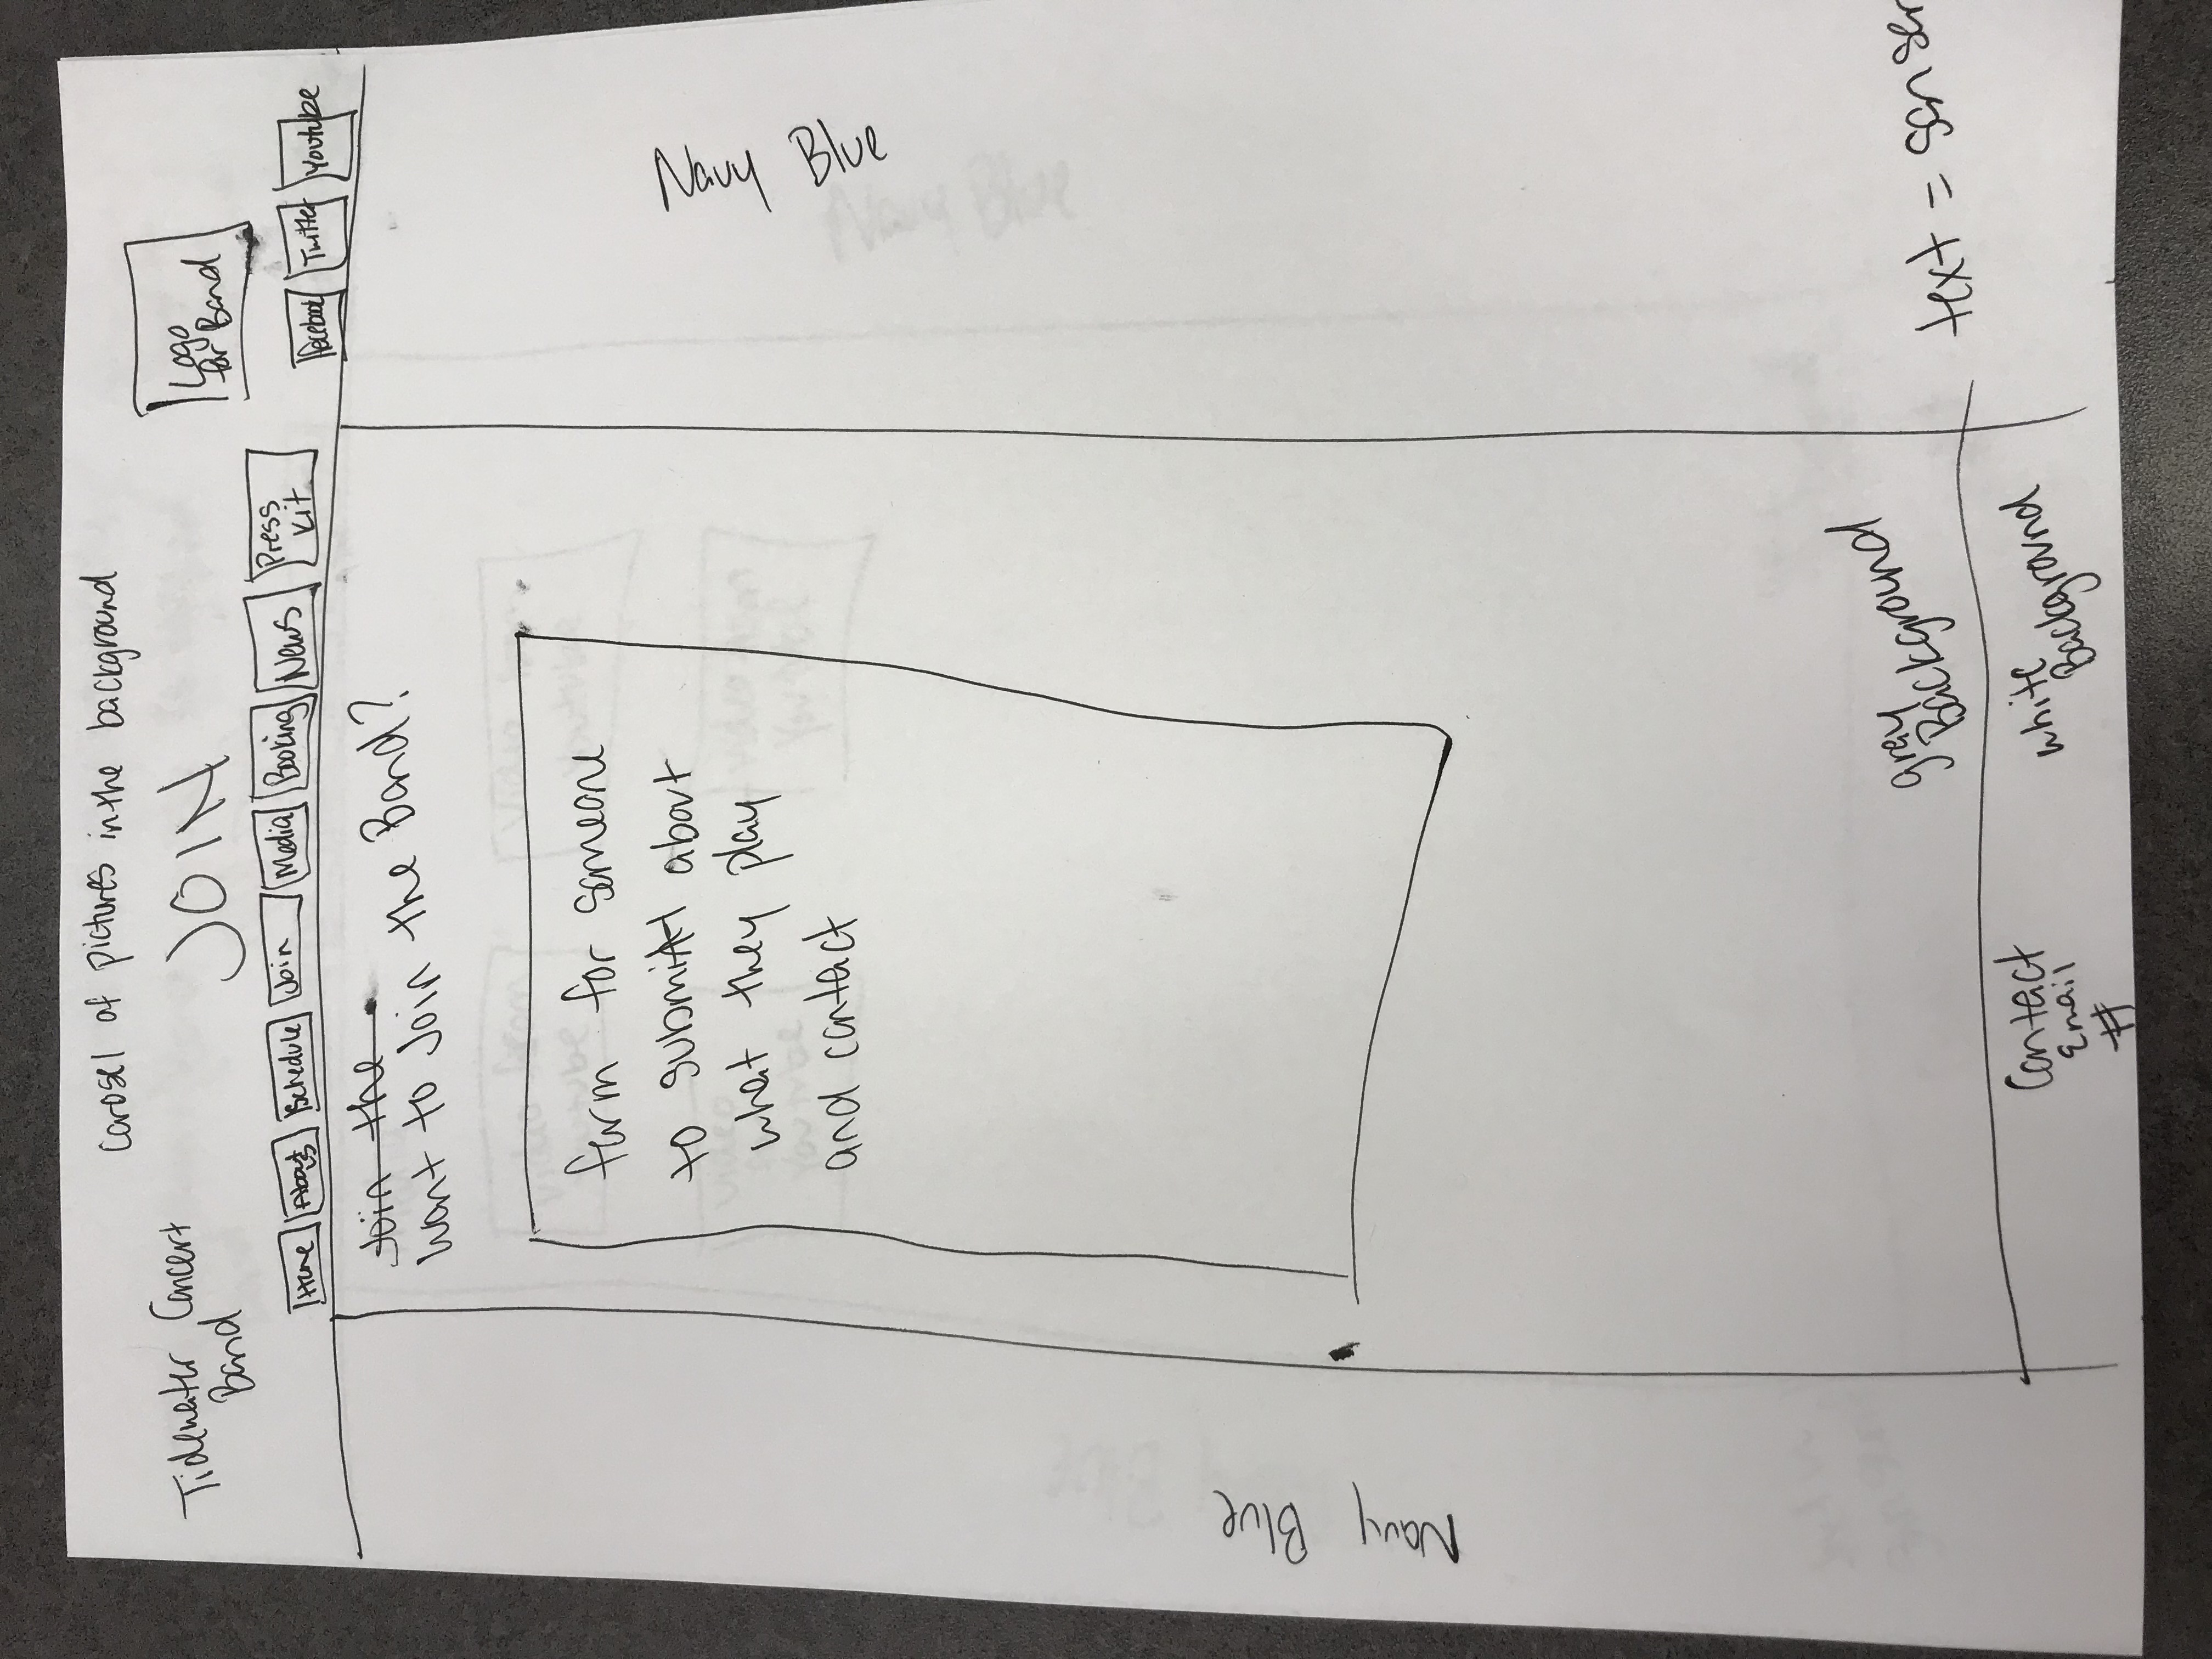 Carosel of pictures in the background
Tidewater Concert
Band
JOIN
Logo
for Band
Home
About
us
Schedule
Join
Media
Booking
News
Press
Kit
Facebook
Twitter
Youtube
Join the
Want to Join the Band?
form for someone
to submit about
what they play
and contact
Navy Blue
Navy Blue
gray
Background
text = san ser
Contact
Email
#
white
Background